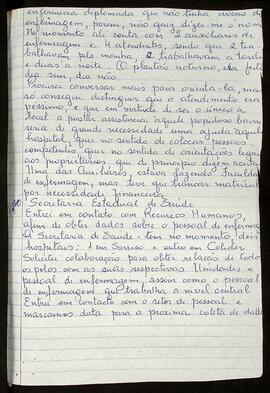 enfermeira diplomada que não tinha noção de
enfermagem, porém, não quiz dizer-me o nome
No momento ali conta com 2 auxiliares de
enfermagem e 4 atendentes, sendo que 2 tra
balhavam pla manhã, 2 trabalhavam a tarde
e duas a noite. (O plantão noturno,
dia sim, dia não.
Procurei conversar mais para orienta-la, mas
só consegui distinguir que o atendimento era
péssimo e que em virtude de ser o único a
local a prestar assistência aquele populoso bairro
seria de grande necessidade uma ajuda aquele
hospital, quer no sentido de colocar pessoas
competentes quer no sentido de orientações legais
aos proprietários, que de principio dizem aceitar
Uma das Auxiliares, estava fazendo Faculdade
de enfermagem, mas teve que trancar matricula
por necessidade financeira.
Secretaria Estadual de Saúde
Entrei em contato com Recursos Humanos,
afim de obter dados sobre o pessoal de enfermagem
A Secretaria de Saúde tem no momento, dois
hospitais: 1 em Sorriso e outro em Colider
Solicitei colaboração para obter relação de todos
os polos com as suas respectivas Unidades e
pessoal de enfermagem, assim como o pessoal
de enfermagem que trabalha a nivel central
Entrei em contato com o setor de pessoal e
marcamos data para a proxima coleta de dados